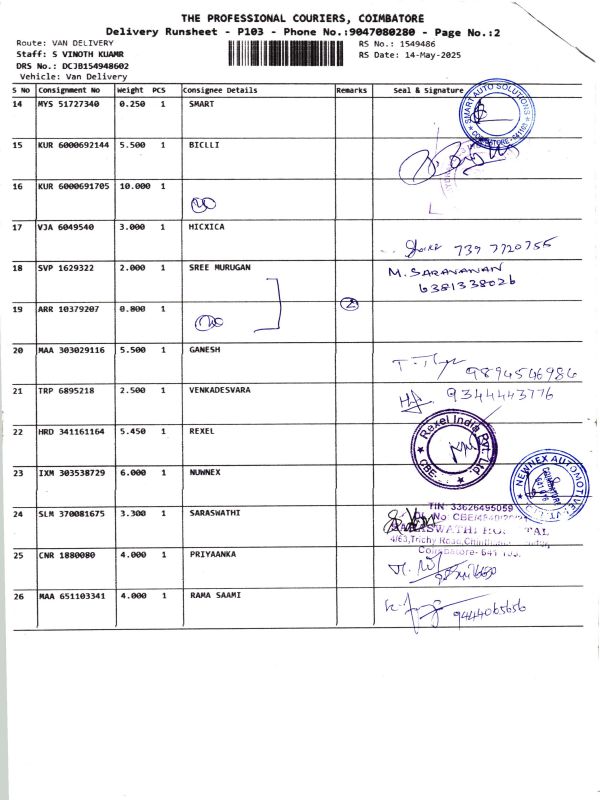 THE PROFESSIONAL COURIERS, COIMBATORE
Delivery Runsheet - P103 - Phone No.:9047080280 - Page No.:2
Route: VAN DELIVERY RS No.: 1549486
Staff: S VINOTH KUAMR RS Date: 14-May-2025
DRS No.: DCJB154948602
Vehicle: Van Delivery
S No Consignment No Weight PCS Consignee Details Remarks Seal & Signature
14 MYS 51727340 0.250 1 SMART
SMART AUTO SOLUTIONS
COIMBATORE-641103
15 KUR 6000692144 5.500 1 BICLLI
16 KUR 6000691705 10.000 1
17 VJA 6049540 3.000 1 HICXICA
739 7720755
18 SVP 1629322 2.000 1 SREE MURUGAN M. SARAVANAN
6381338026
19 ARR 10379207 0.800 1 2
20 MAA 303029116 5.500 1 GANESH
9894546986
21 TRP 6895218 2.500 1 VENKADESVARA 9344443776
22 HRD 341161164 5.450 1 REXEL
Rexel India Pvt. Ltd
CBE
23 IXM 303538729 6.000 1 NUWNEX
NEWNEX AUTOMOTIVE
24 SLM 370081675 3.300 1 SARASWATHI
TIN 33626495059
SARASWATHI HOSPITAL
4/63, Trichy Road,
Coimbatore- 641 103.
25 CNR 1880080 4.000 1 PRIYAANKA
26 MAA 651103341 4.000 1 RAMA SAAMI
9444065656